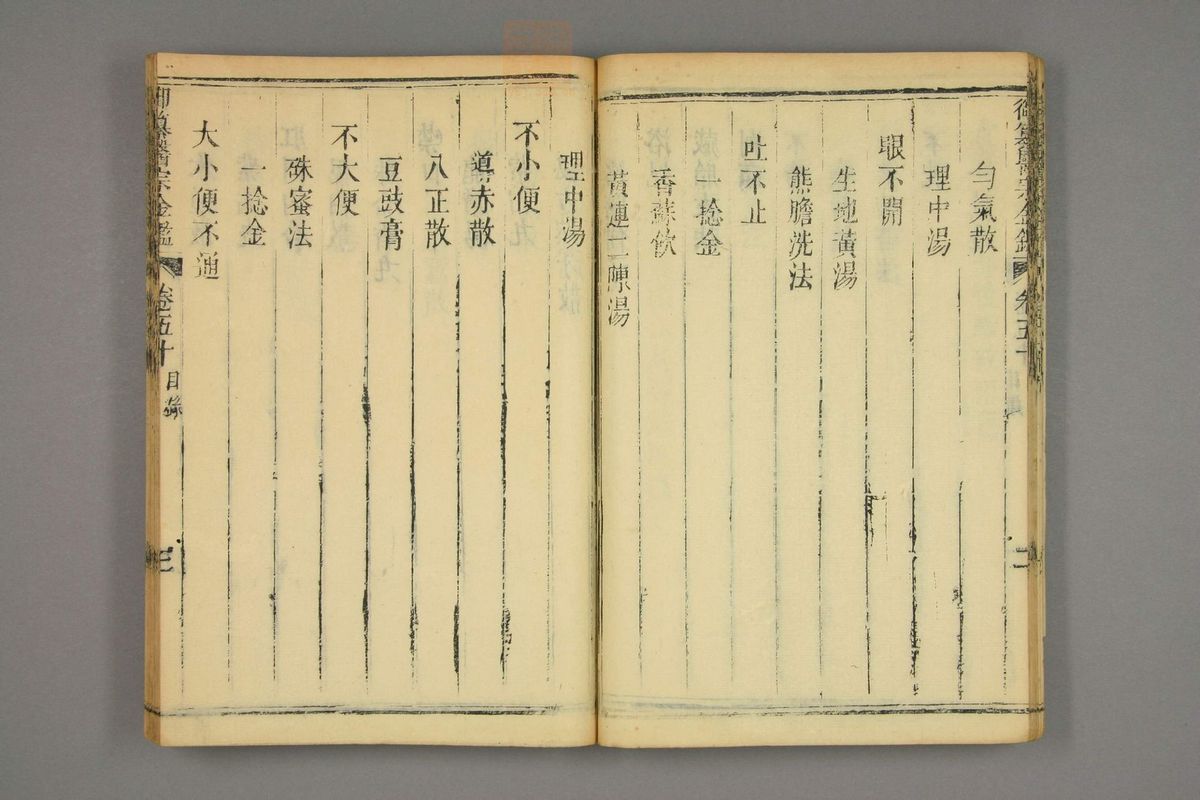 勻氣散
理中湯
眼不開
生地黃湯
熊膽洗法
吐不止
一捻金
香蘇飲
黃連二陳湯
理中湯
不小便
導赤散
八正散
豆豉膏
不大便
硃蜜法
一捻金
大小便不通
御纂醫宗金鑑 卷五十 目錄 三